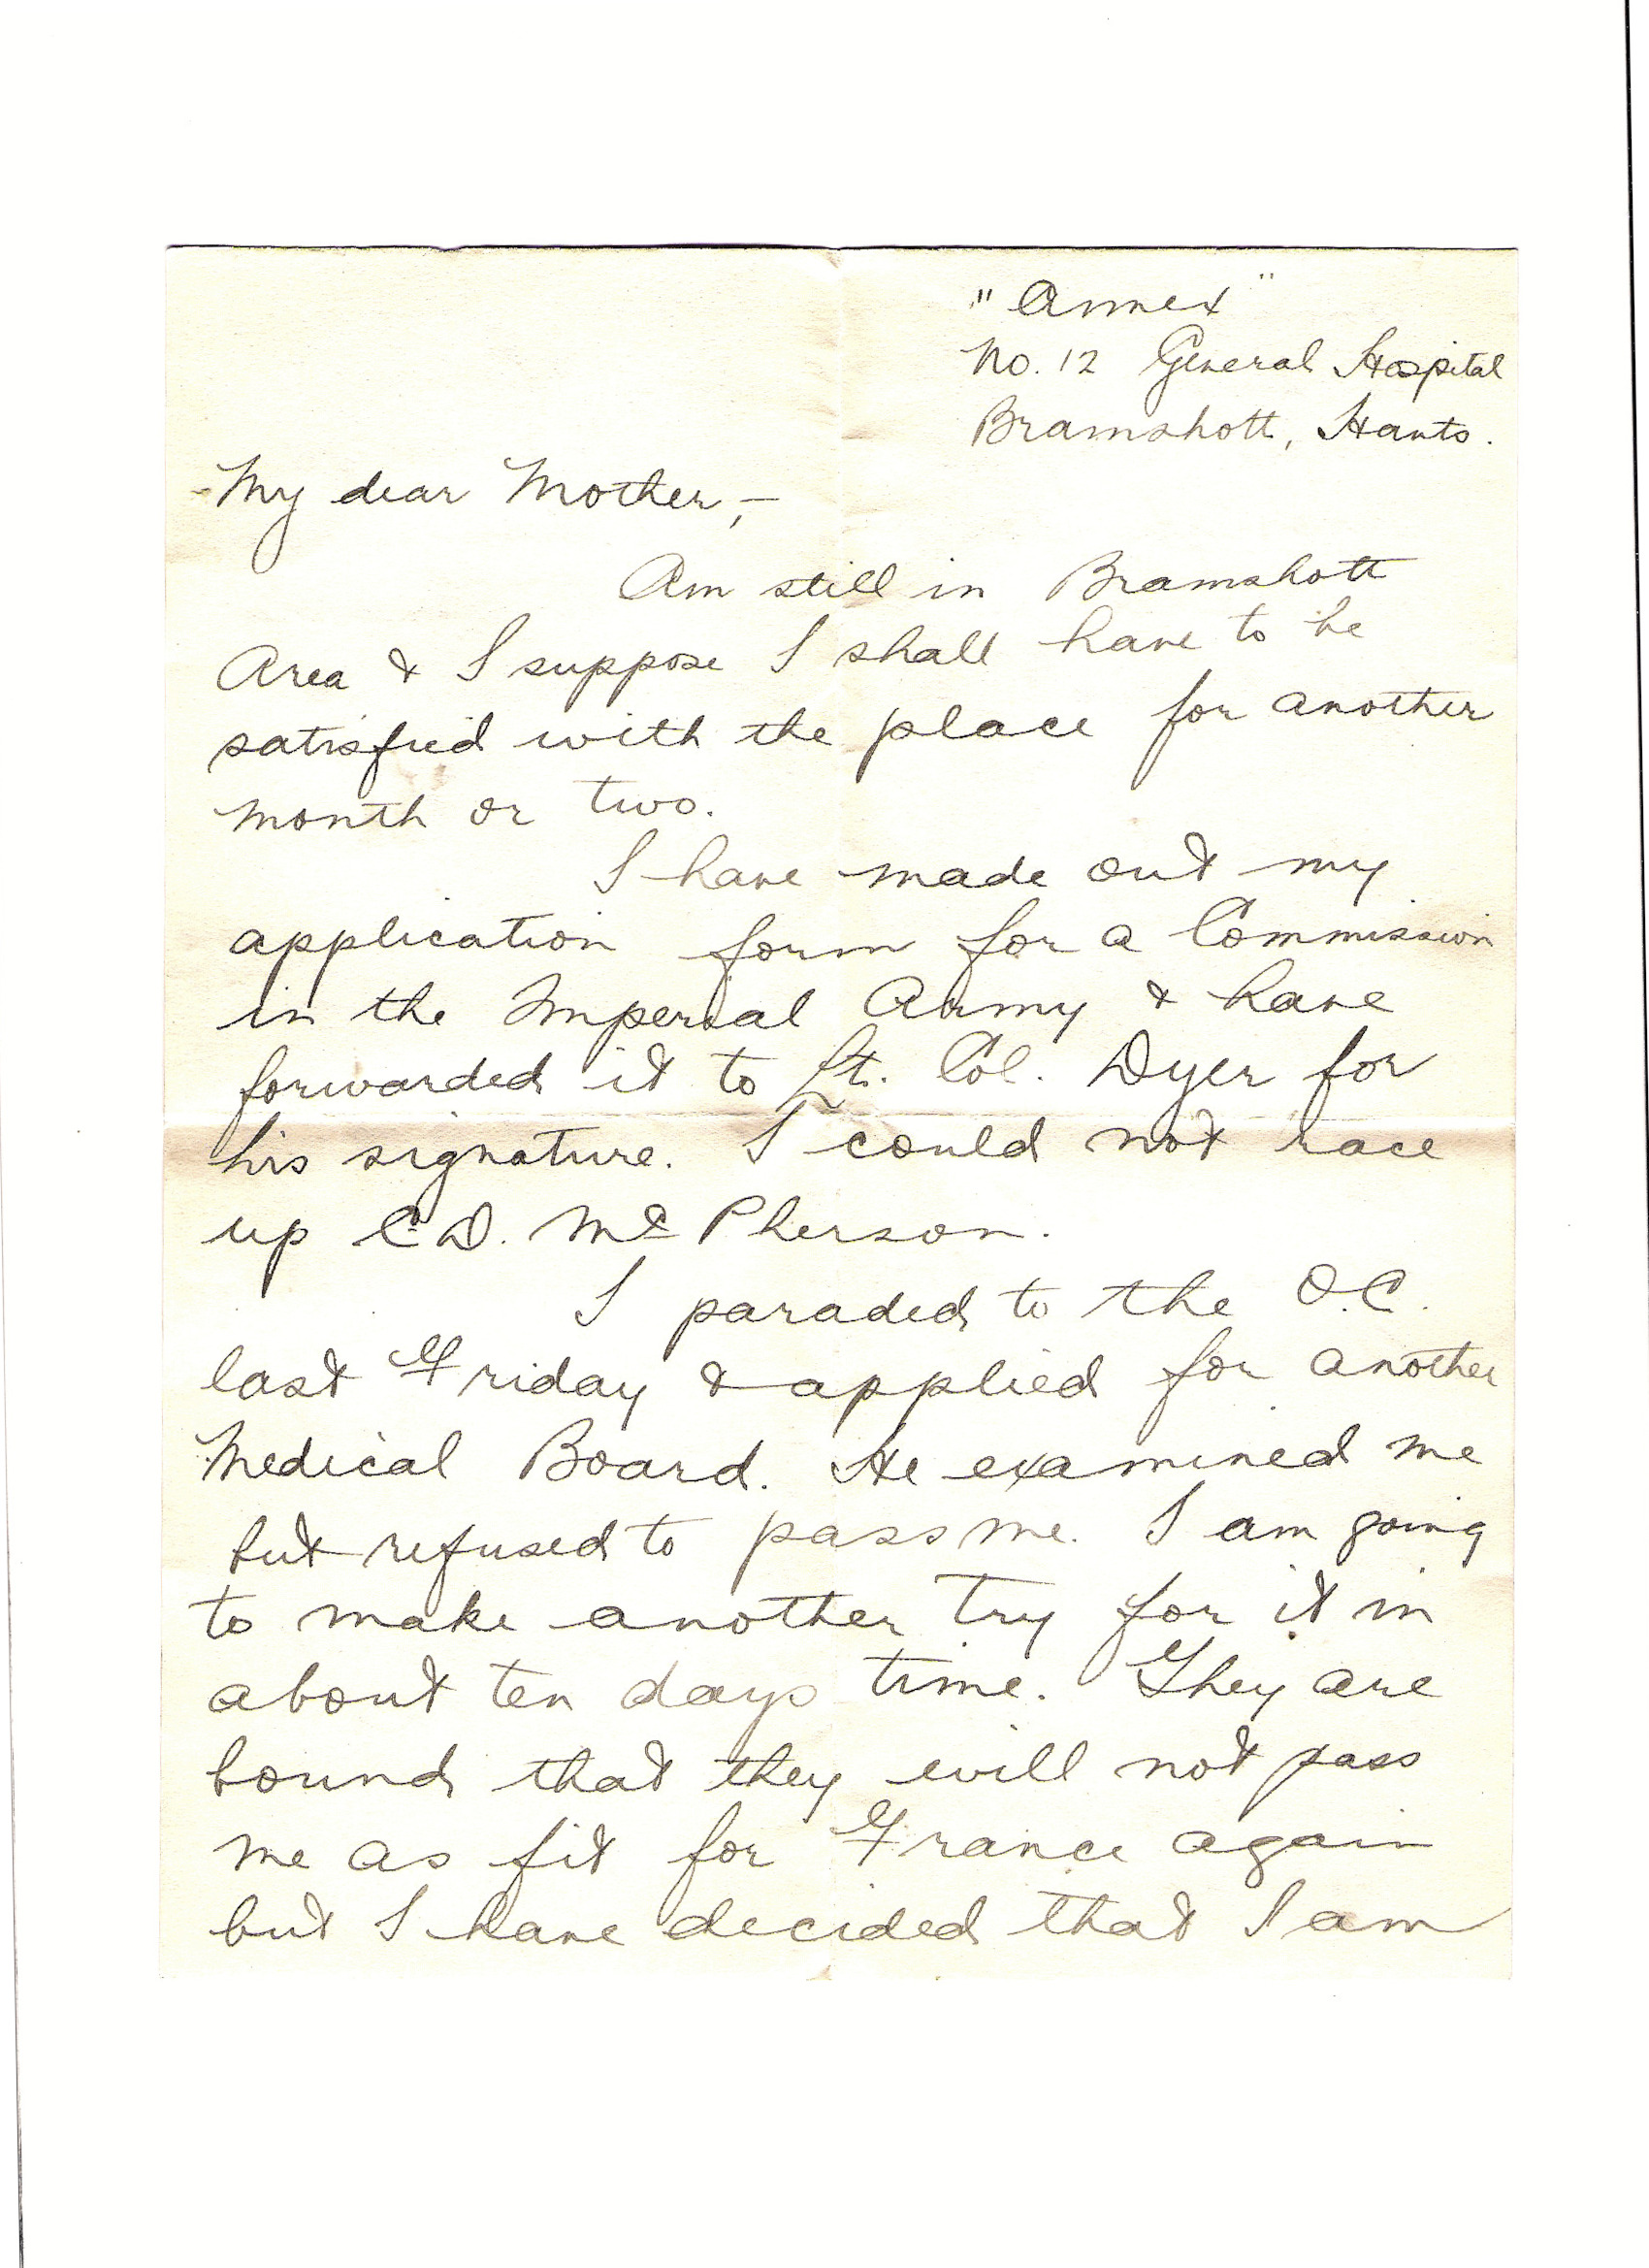 "Annex"
No. 12 General Hospital
Bramshott, Hants.
My dear Mother,-
Am still in Bramshott
Area & I suppose I shall have to be
satisfied with the place for another
month or two.
I have made out my
application form for a Commission
in the Imperial Army & have
forwarded it to Lt. Col. Dyer for
his signature. I could not race
up C.D. McPherson.
I paraded to the O.C.
last Friday & applied for another
Medical Board. He examined me
but refused to pass me. I am going
to make another try for it in
about ten days time. They are
bound that they will not pass
me as fit for France again
but I have decided that I am